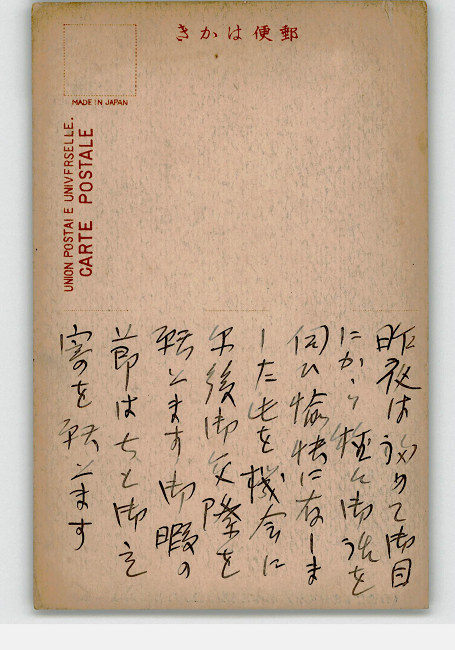 郵便はかき
MADE IN JAPAN
UNION POSTALE UNIVERSELLE.
CARTE POSTALE
昨夜は初めて御目
にかゝり種々御話を
伺ひ愉快に存しま
した此を機会に
尓後御交際を
願ひます御暇の
節はちと御立
寄を願ひます